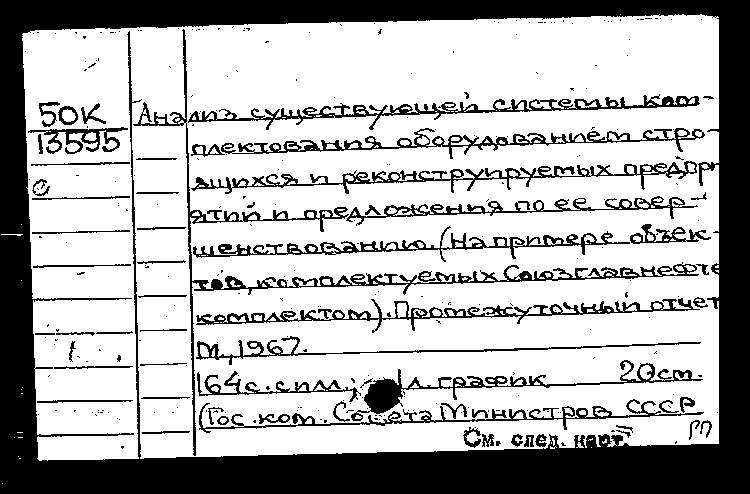 50К
13595
Анализ существующей системы ком-
плектования оборудованием стро-
ящихся и реконструируемых предпри
ятий и предложения по ее совер-
шенствованию. (На примере объек-
тов, комплектуемых Союзглавнефте
комплектом). Промежуточный отчет
М., 1967.
164с. с илл.; 1л. график 20см.
(Гос. ком. Совета Министров СССР
См. след. карт.
РП